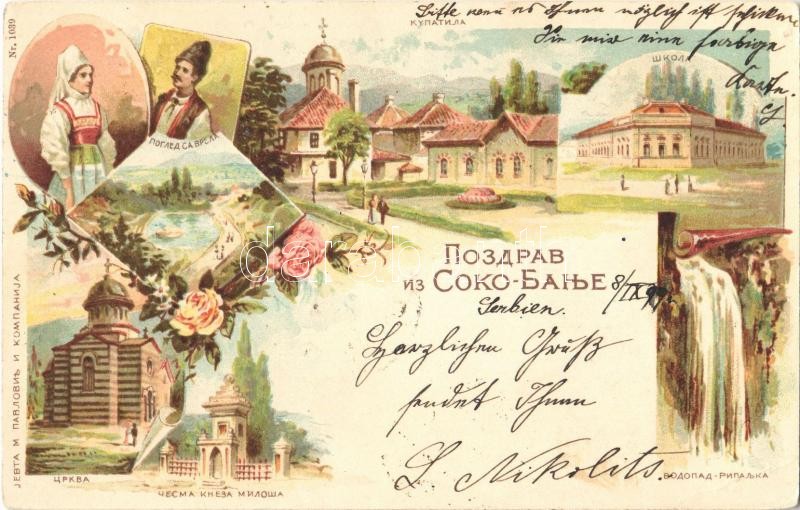 Nr. 1039
Bitte wenn es Ihnen möglich ist schicken
Sie mir eine farbige
Karte.
КУПАТИЛА
ШКОЛА
ПОГЛЕД СА ВРЕЛА
ПОЗДРАВ
ИЗ СОКО-БАЊЕ
8/IX 97.
Serbien.
Herzlichen Gruß
sendet Ihnen
S. Nikolits.
ЈЕВТА М. ПАВЛОВИЋ И КОМПАНИЈА
ЦРКВА
ЧЕСМА КНЕЗА МИЛОША
ВОДОПАД-РИПАЉКА
darabanth